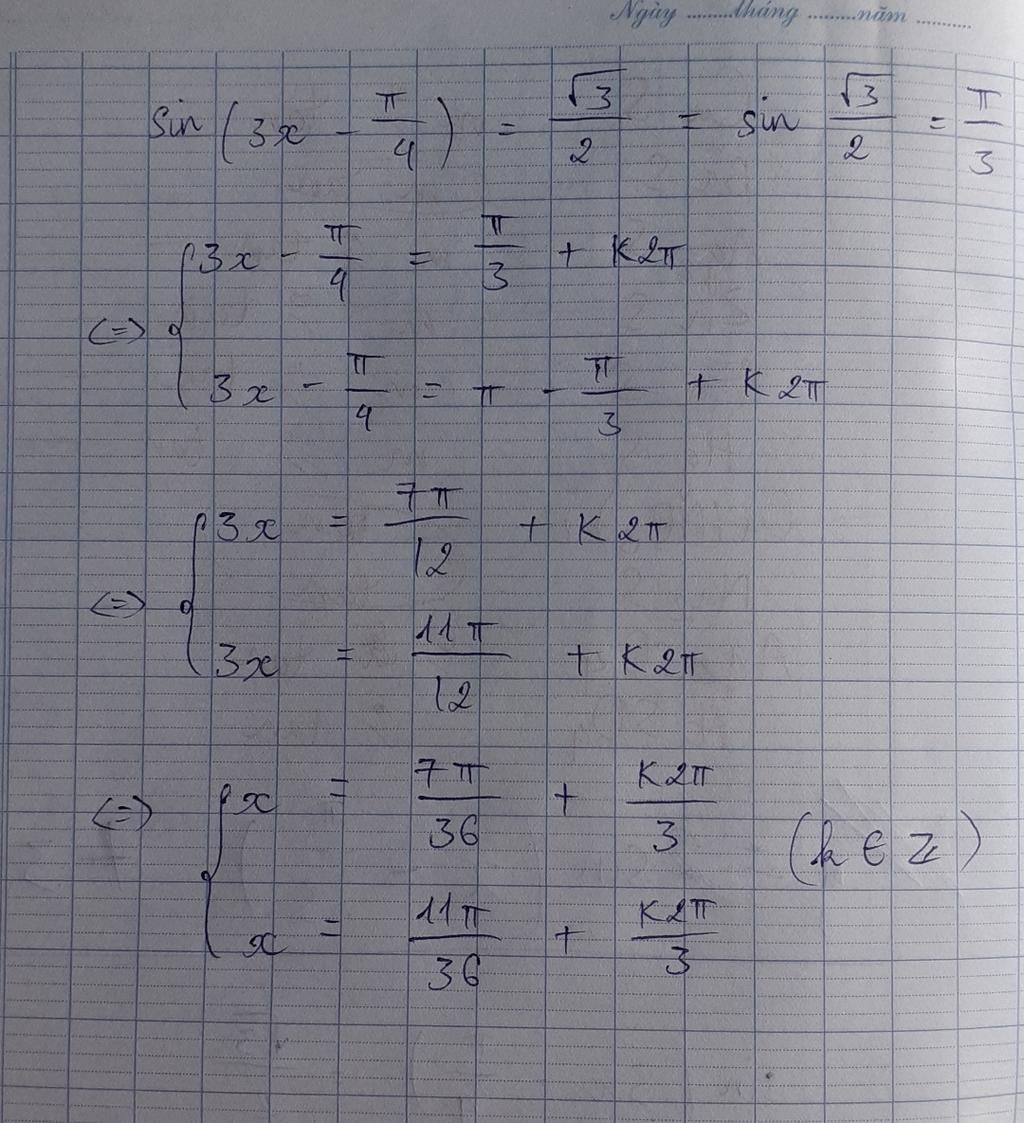 Ngày ........tháng ........năm ..........
sin (3x - π/4) = √3/2 = sin √3/2 = π/3
<=> { 3x - π/4 = π/3 + K2π
3x - π/4 = π - π/3 + K2π
<=> { 3x = 7π/12 + K2π
3x = 11π/12 + K2π
<=> { x = 7π/36 + K2π/3 (k ∈ ℤ)
x = 11π/36 + K2π/3